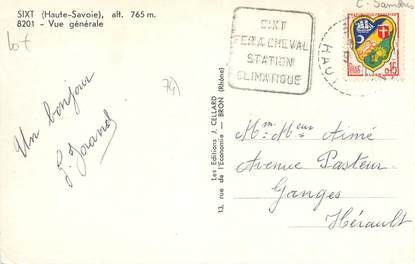 SIXT (Haute-Savoie), alt. 765 m.
8201 - Vue générale
lot
74)
Un bonjour
Les Editions J. CELLARD
13, rue de l'Economie — BRON (Rhône)
SIXT
FER A CHEVAL
STATION
CLIMATIQUE
HAUT
0,15
Mme Meur Aimé
Avenue Pasteur
Ganges
Hérault